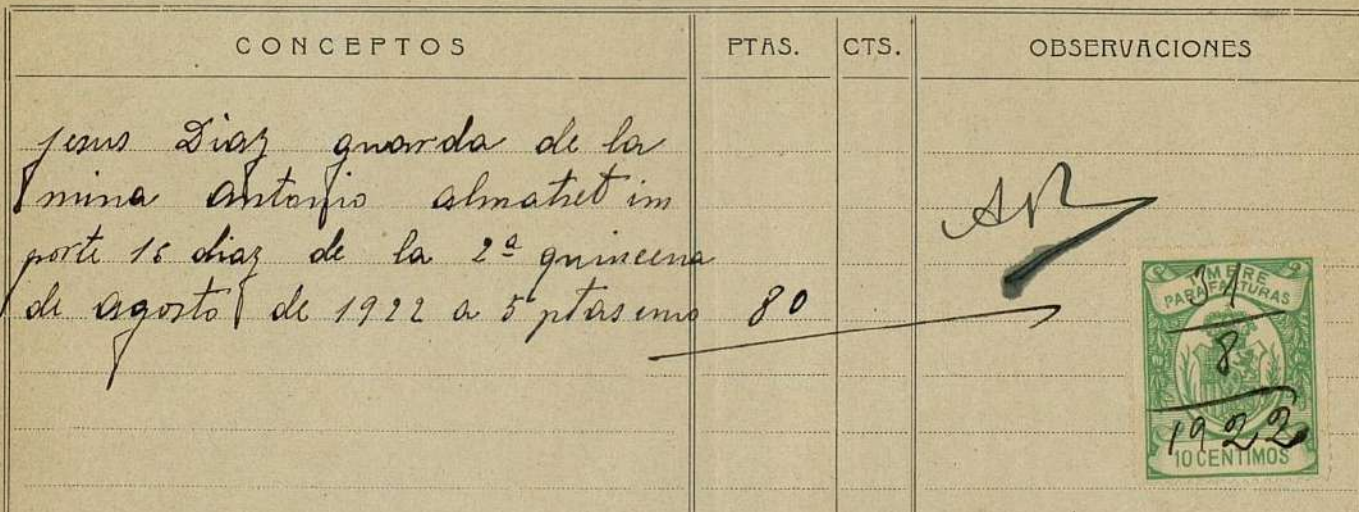 CONCEPTOS PTAS. CTS. OBSERVACIONES
Jesus Diaz guarda de la
mina Antonio Almatret im
porte 16 diaz de la 2ª quincena
de agosto de 1922 a 5 ptas uno 80
TIMBRE
PARA FACTURAS
31
8
1922
10 CENTIMOS